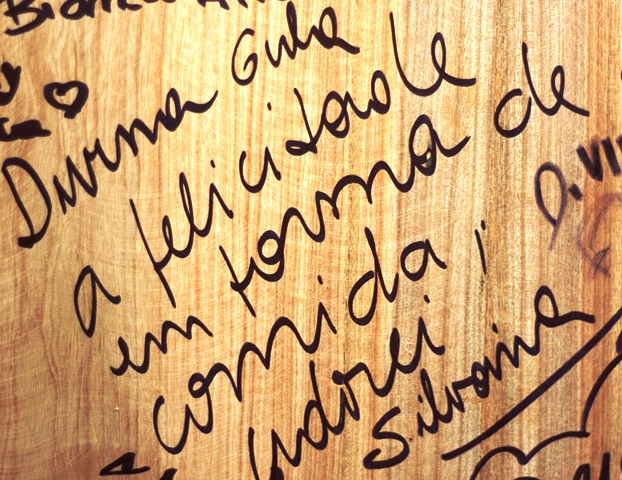 Divina Gula
a felicidade
em forma de
comida!
Adorei
Silvana
D.VI